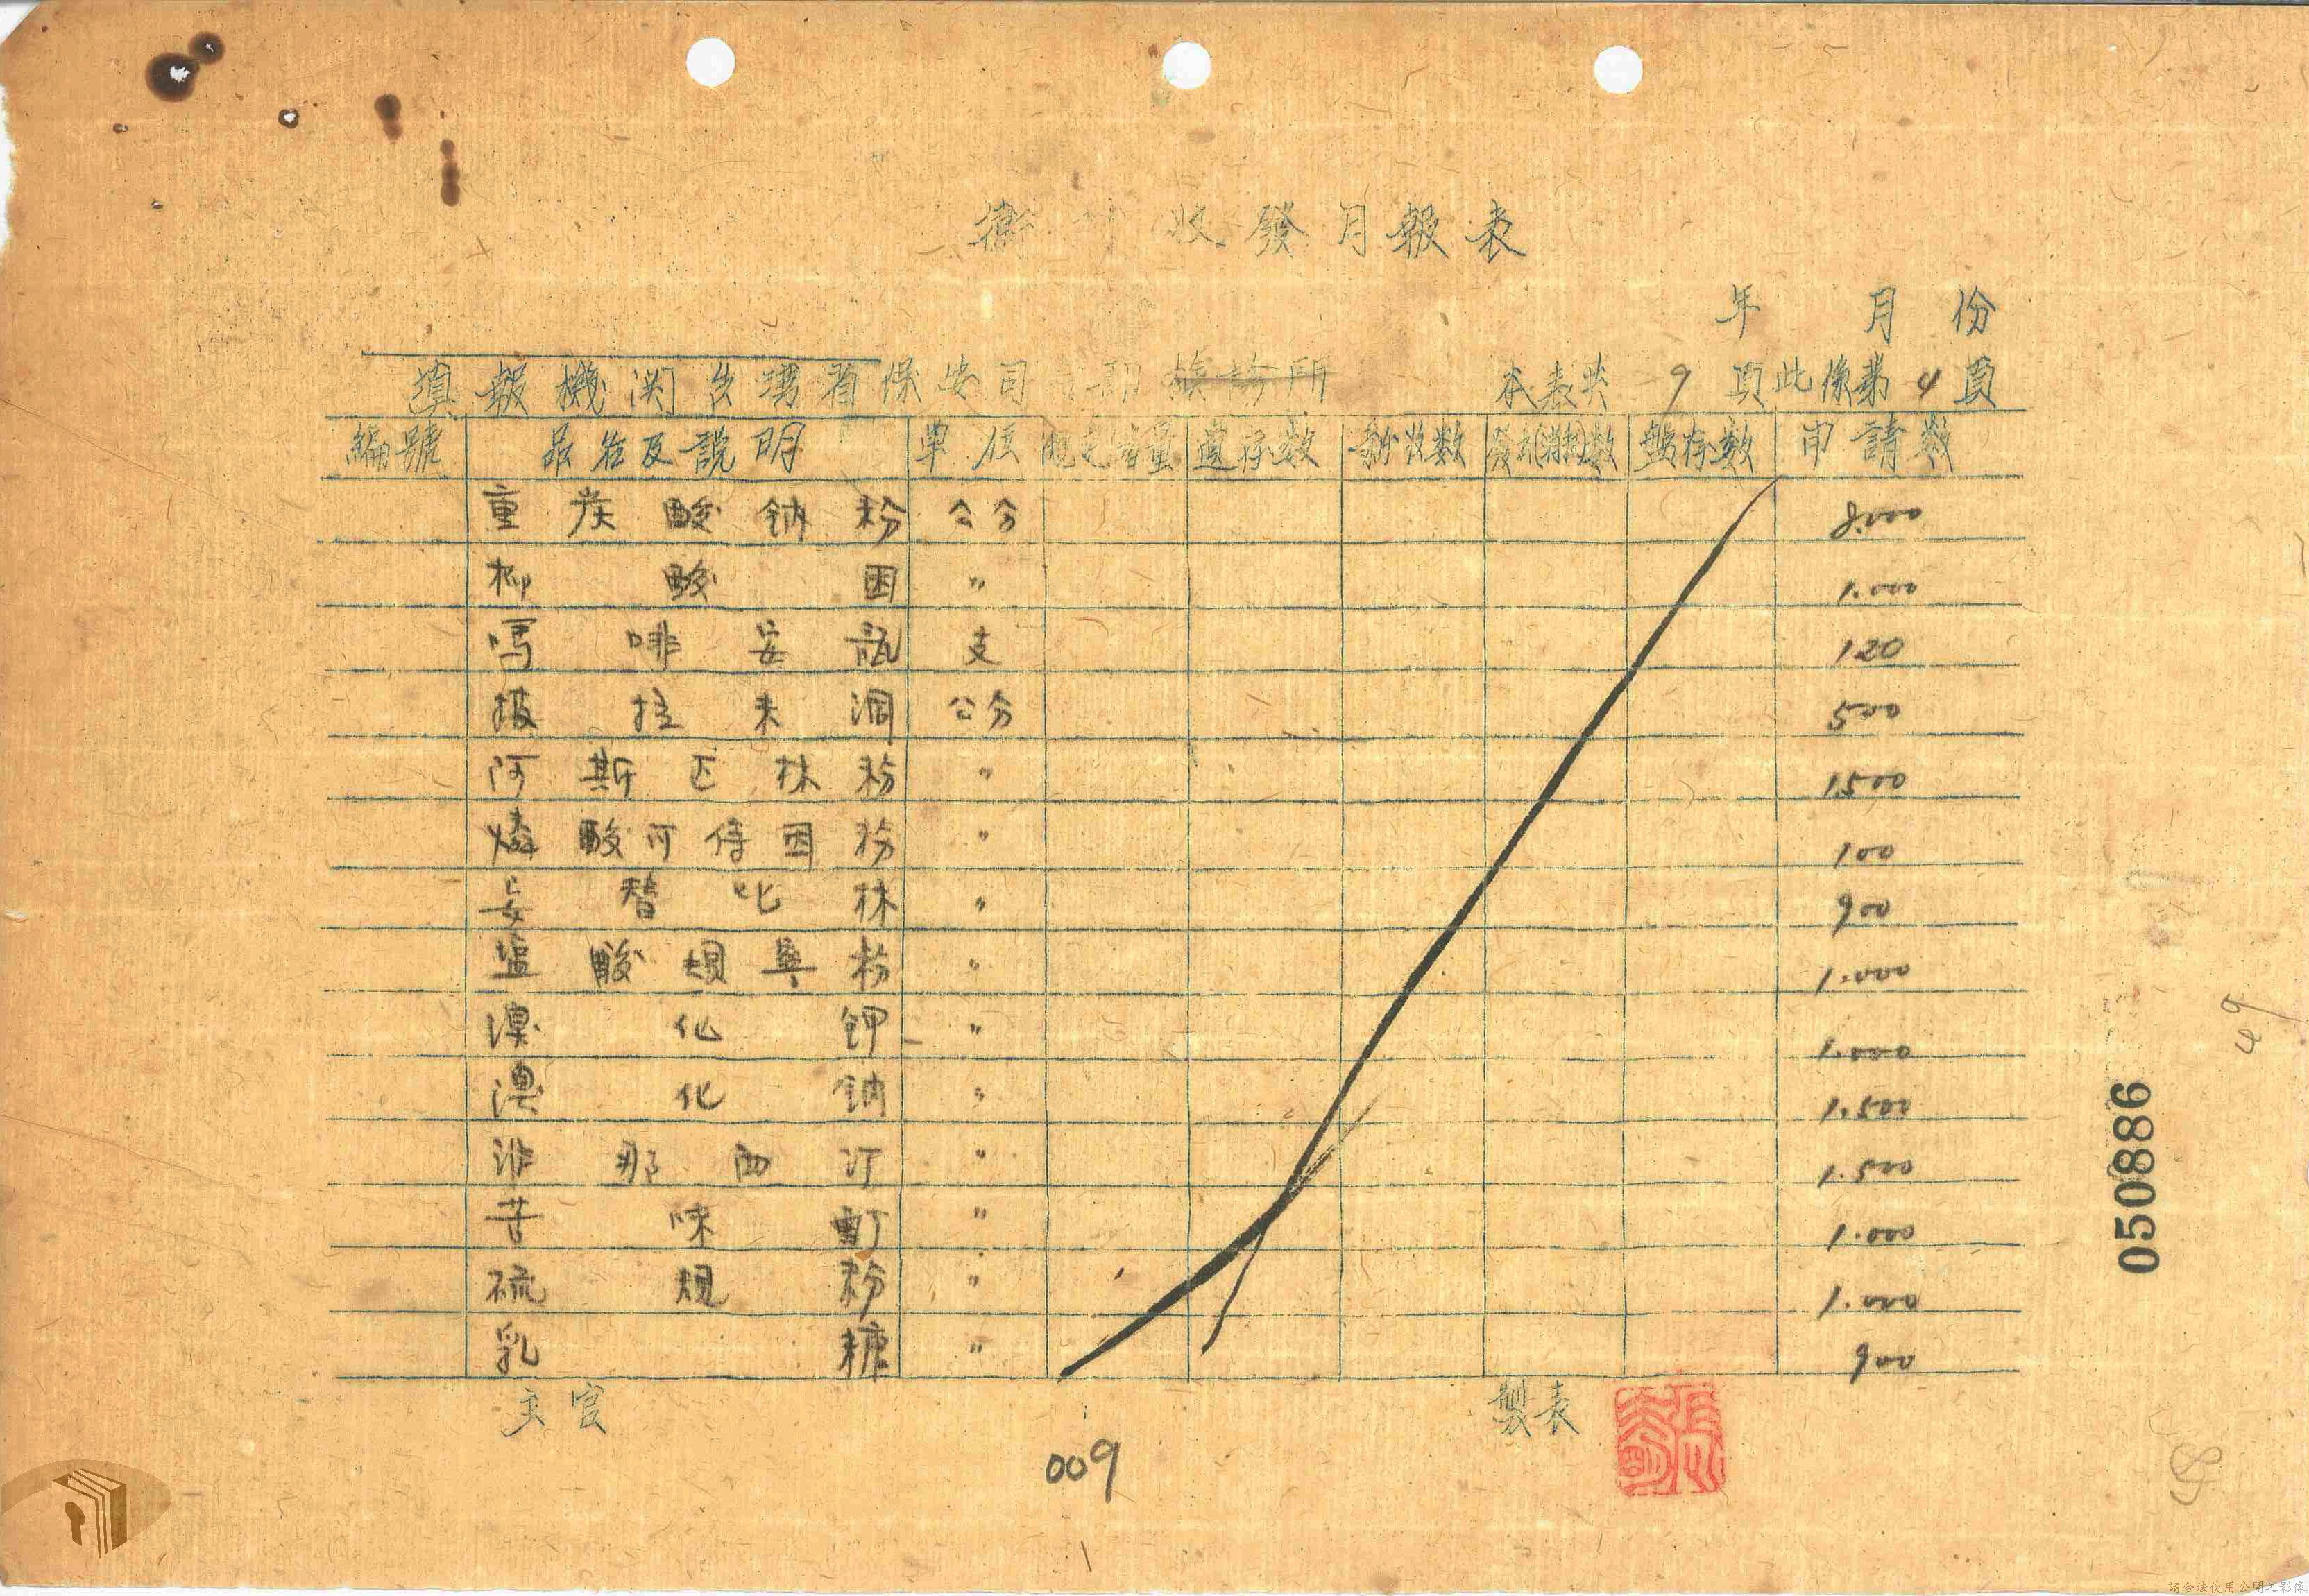 衛 收發月報表
年 月 份
填報機関台湾省保安司 部 診所 本表共 9 頁此係第 4 頁
編號 品名及説明 單位 量 遺存數 新收數 發出(消耗)數 盤存數 申請數
重炭酸鈉粉 公分 8.000
柳酸因 〃 1.000
嗎啡安瓿 支 120
拉未洞 公分 500
阿斯匹林粉 〃 1.500
燐酸可待因粉 〃 100
安替比林 〃 900
盐酸規寧粉 〃 1.000
溴化钾 〃 1.000
溴化鈉 〃 1.500
非那西汀 〃 1.500
苦味酊 〃 1.000
硫規粉 〃 1.000
乳糖 〃 900
主官 製表
009
050886
49
請合法使用公開之影像